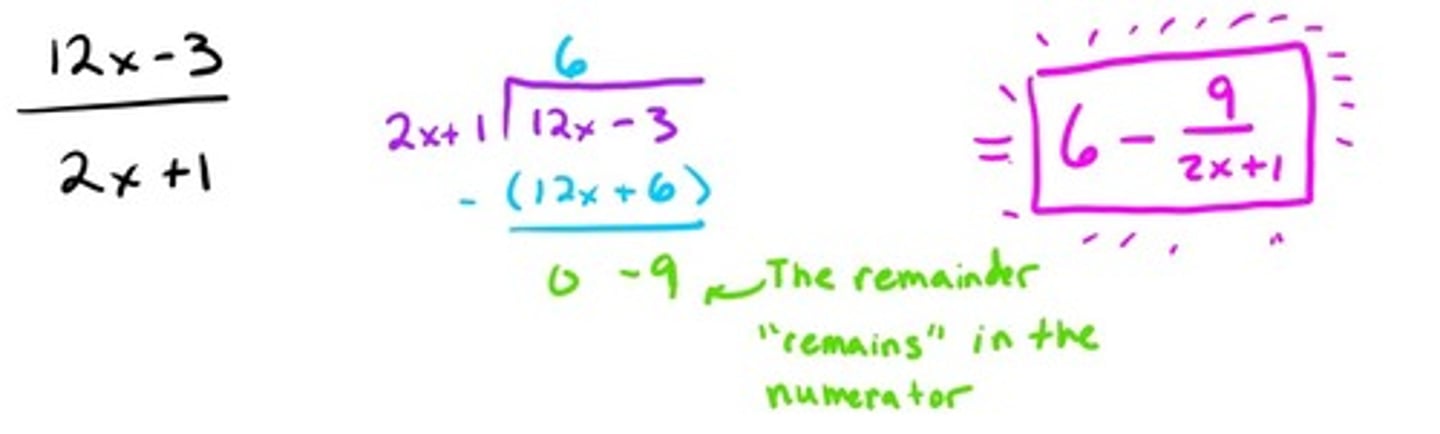 12x - 3
2x + 1
6
2x+1 12x - 3
- (12x + 6)
0 - 9
The remainder
"remains" in the
numerator
= 6 - 9
2x+1